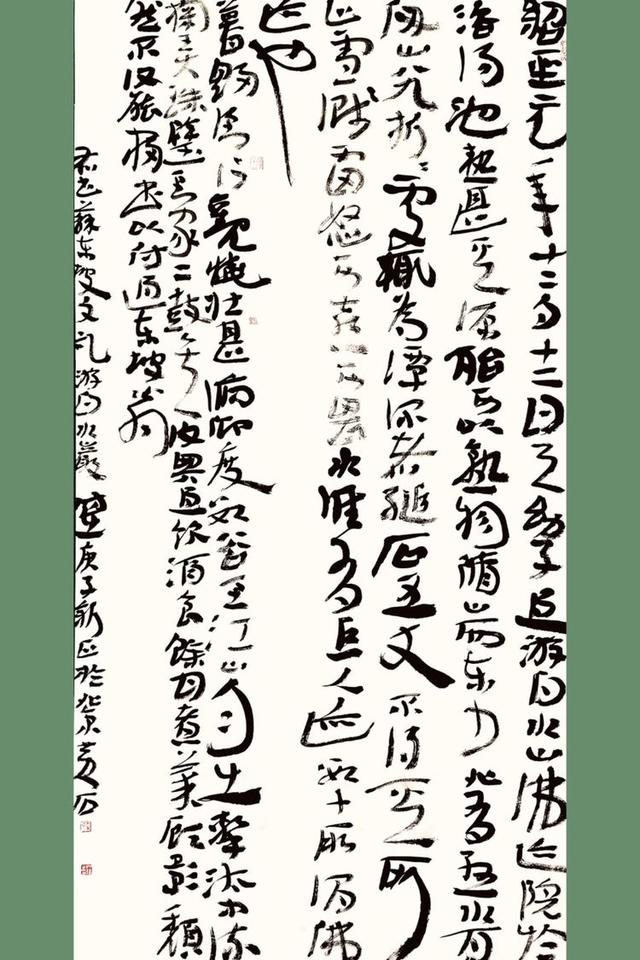 紹聖元年十二月十二日与幼子過游白水山佛迹院於
浴湯池熱甚其源殆可以熟物循山而東少北有懸水百
仞山八九折々處輒為潭深者縋石五丈不得其所
止雪濺雷怒可喜可畏水涯有巨人迹數十所謂佛
迹也
暮歸倒行觀燒壯甚俯仰度數谷至江山月出擊汰中流
掬弄珠璧到家二鼓矣復與過飲酒食餘甘煮菜顧影頹
然不復能寐書以付過東坡翁
蘇東坡文記游白水巖庚子新正於北京